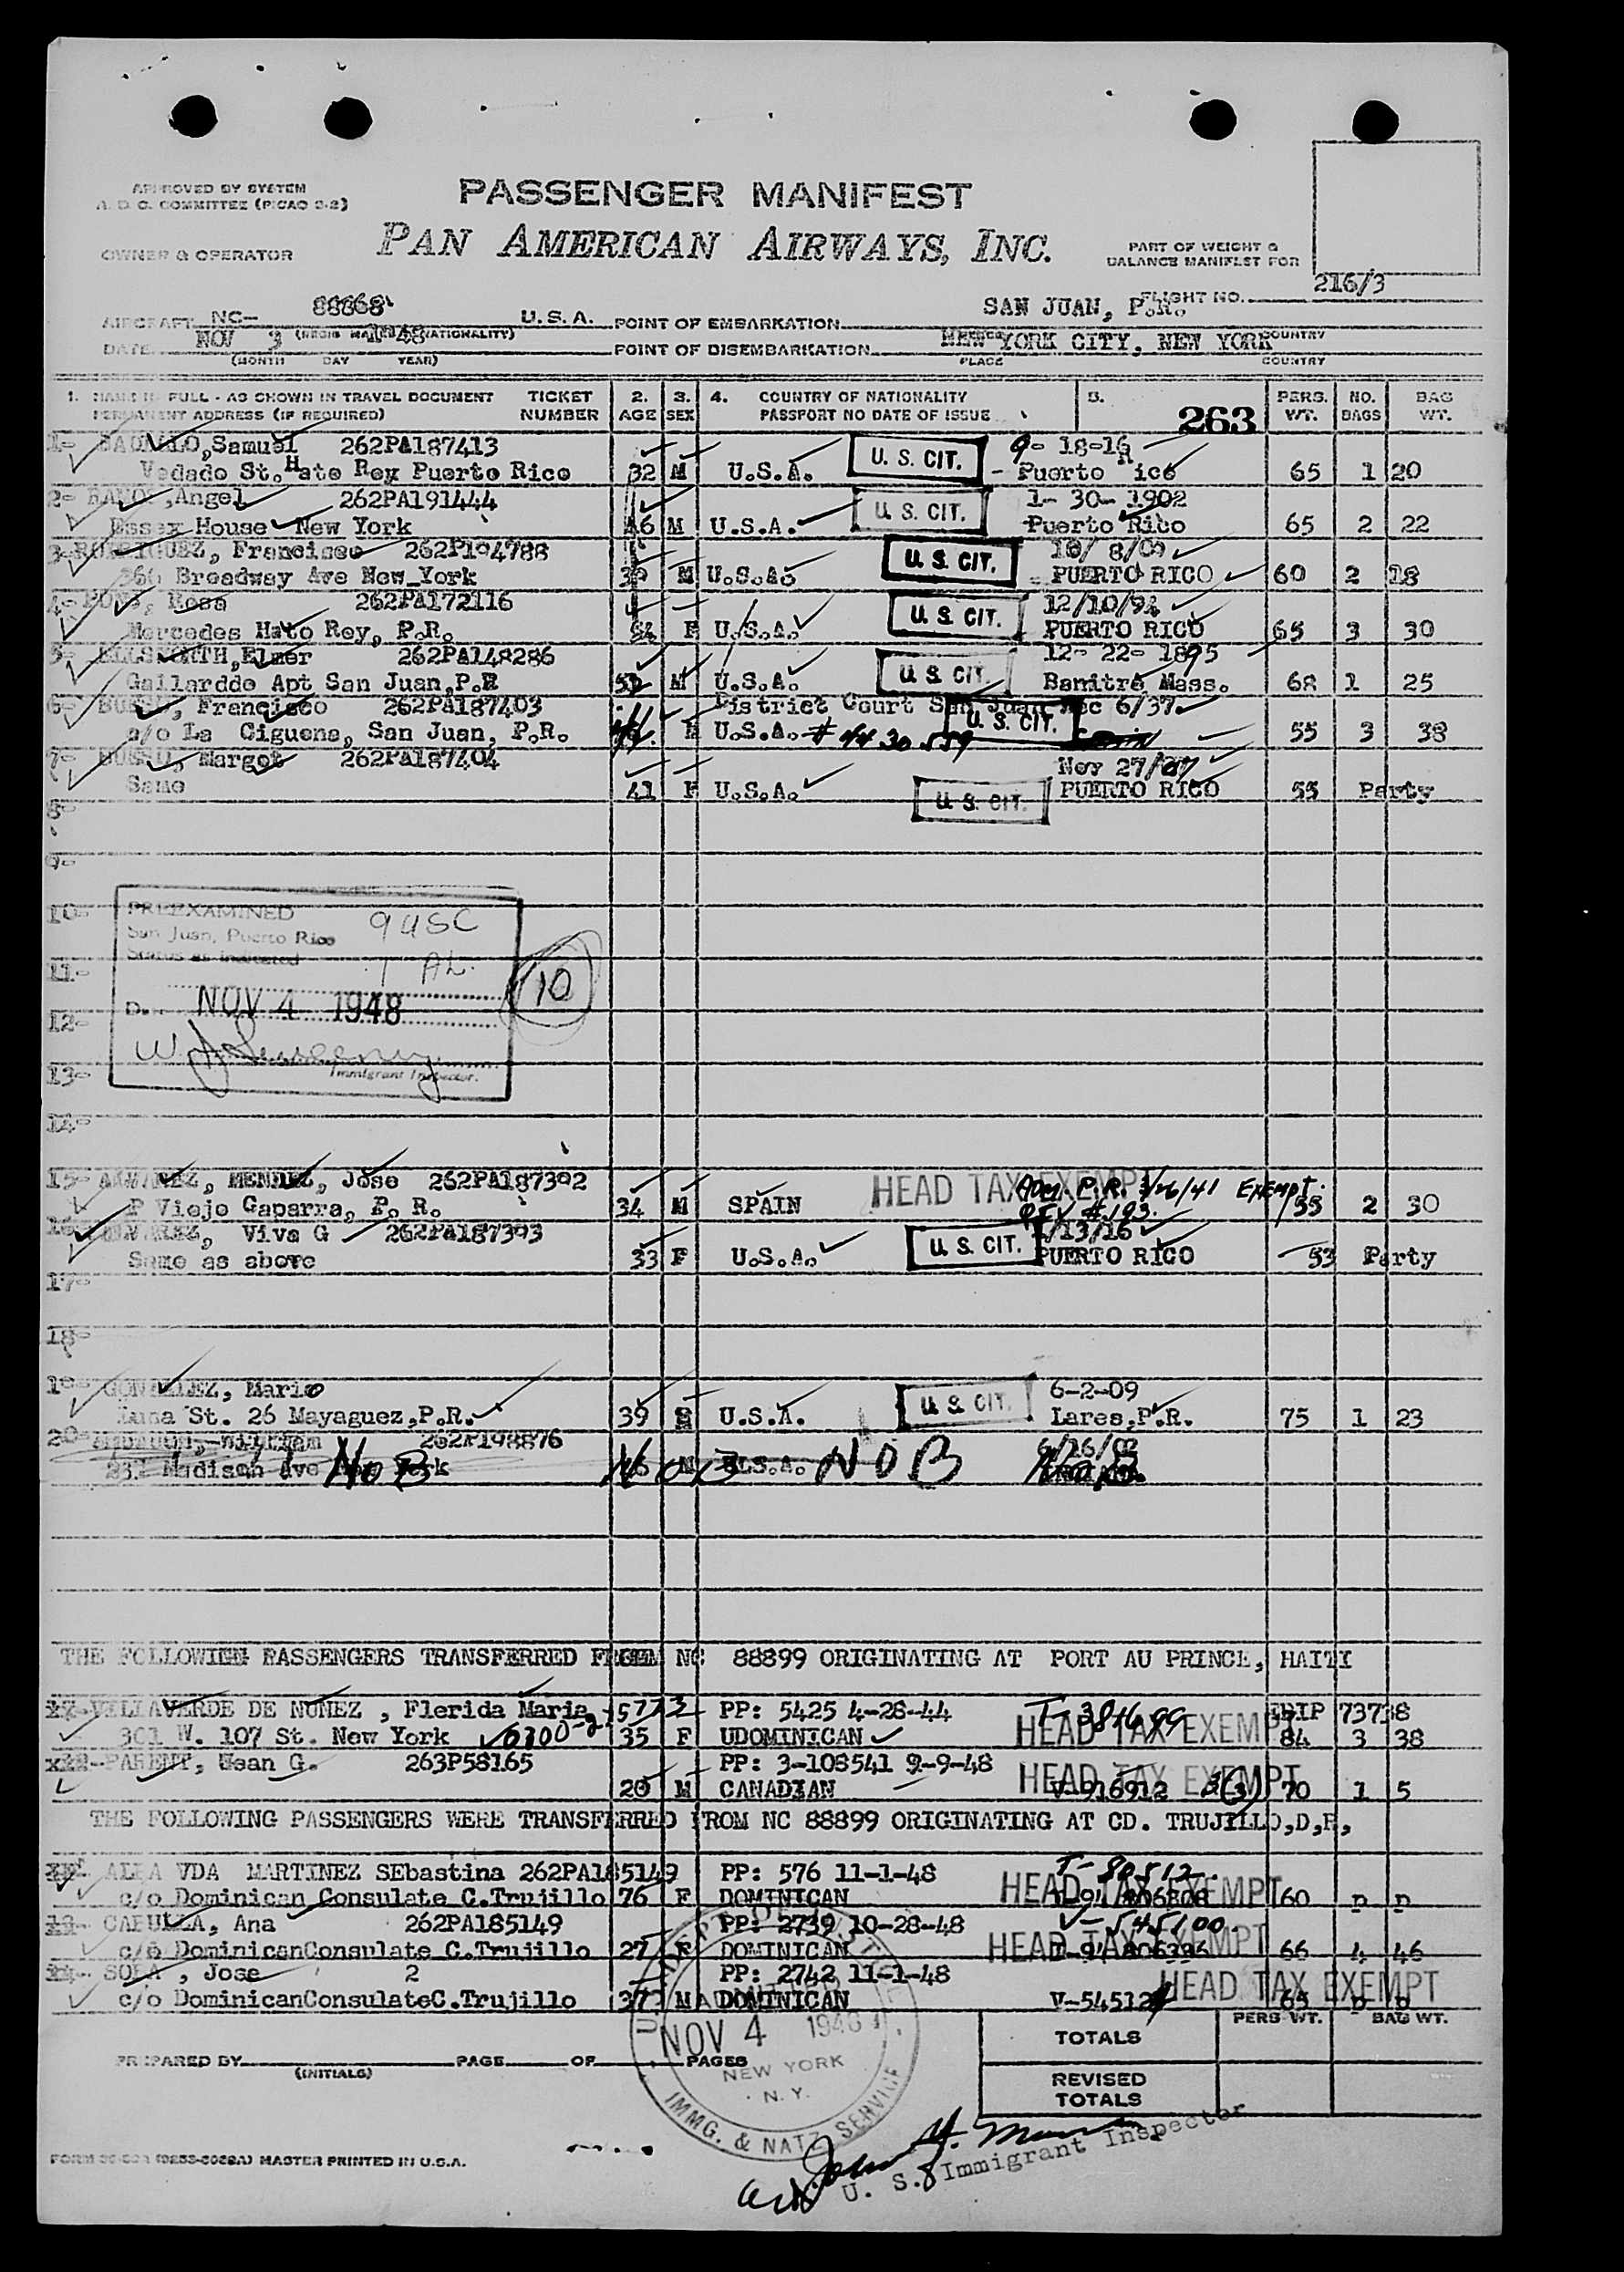 APPROVED BY SYSTEM
A. D. C. COMMITTEE (PICAO 2-2)
PASSENGER MANIFEST
OWNER & OPERATOR
PAN AMERICAN AIRWAYS, INC.
PART OF WEIGHT &
BALANCE MANIFEST FOR
FLIGHT NO. 216/3
AIRCRAFT NC- 88868 U. S. A. POINT OF EMBARKATION SAN JUAN, P.R.
DATE NOV 3 1948 POINT OF DISEMBARKATION NEW YORK CITY, NEW YORK
(MONTH DAY YEAR) PLACE COUNTRY
1. NAME IN FULL - AS SHOWN IN TRAVEL DOCUMENT TICKET 2. 3. 4. COUNTRY OF NATIONALITY 5. PERS. NO. BAG
PERMANENT ADDRESS (IF REQUIRED) NUMBER AGE SEX PASSPORT NO DATE OF ISSUE 263 WT. BAGS WT.
1- Samuel 262PA187413 U. S. CIT. 9-18-16
Vedado St. Hato Rey Puerto Rico 32 M U.S.A. Puerto Rico 65 1 20
2- Angel 262PA191444 U. S. CIT. 1- 30- 1902
Essex House New York 46 M U.S.A. Puerto Rico 65 2 22
3- RODRIGUEZ, Francisco 262P194788 U. S. CIT. 10/ 8/09
366 Broadway Ave New York M U.S.A. PUERTO RICO 60 2 18
4- PONS, Rosa 262PA172116 U. S. CIT. 12/10/94
Mercedes Hato Rey, P.R. F U.S.A. PUERTO RICO 65 3 30
5- ELLSWORTH, Elmer 262PA148286 U. S. CIT. 12- 22- 1895
Gallardde Apt San Juan, P.R 52 M U.S.A. Mass. 68 1 25
6- Francisco 262PA187403 District Court San Juan Dec 6/37
c/o La Ciguena, San Juan, P.R. M U.S.A. # 4430559 U. S. CIT. 55 3 38
7- Margot 262PA187404 Nov 27/07
Same 41 F U.S.A. U. S. CIT. PUERTO RICO 55 Party
8-
9-
10- PREEXAMINED 9 USC
San Juan, Puerto Rico
Status as indicated
11- 1 AL. 10
12- Date NOV 4 1948
13- Immigrant Inspector.
14-
15- ALVAREZ, MENDEZ, Jose 262PA187302 HEAD TAX EXEMPT Adm. P.R. 1/26/41 Exempt.
P Viejo Caparra, P. R. 34 M SPAIN 55 2 30
16- ALVAREZ, Viva G 262PA187303 U. S. CIT. /13/16
Same as above 33 F U.S.A. PUERTO RICO 53 Party
17-
18-
19- GONZALEZ, Mario U. S. CIT. 6-2-09
Luna St. 26 Mayaguez, P.R. 39 U.S.A. Lares, P.R. 75 1 23
20- William 262P198876 6/16/02
232 Madison Ave New York No B No B U.S.A. NOB No B
THE FOLLOWING PASSENGERS TRANSFERRED FROM NC 88899 ORIGINATING AT PORT AU PRINCE, HAITI
VILLAVERDE DE NUNEZ , Florida Maria PP: 5425 4-28-44
301 W. 107 St. New York 35 F DOMINICAN HEAD TAX EXEMPT 84 3 38
PARENT, Jean G. 263P58165 PP: 3-108541 9-9-48
20 M CANADIAN HEAD TAX EXEMPT V-916912 3(3) 70 1 5
THE FOLLOWING PASSENGERS WERE TRANSFERRED FROM NC 88899 ORIGINATING AT CD. TRUJILLO,D,R,
ALBA VDA MARTINEZ SEbastina 262PA185149 PP: 576 11-1-48 T-80512
c/o Dominican Consulate C.Trujillo 76 F DOMINICAN HEAD TAX EXEMPT 60 p p
Ana 262PA185149 PP: 2739 10-28-48 V-545100
c/o DominicanConsulate C.Trujillo 27 F DOMINICAN HEAD TAX EXEMPT 66 4 46
, Jose 2 PP: 2742 11-1-48
c/o DominicanConsulateC.Trujillo 37 M DOMINICAN V-54512 HEAD TAX EXEMPT 65 p p
PERS WT. BAG WT.
TOTALS
PREPARED BY (INITIALS) PAGE OF PAGES
REVISED
TOTALS
ADMITTED
NOV 4 1948
NEW YORK
N. Y.
IMMG. & NATZ SERVICE
U. S. Immigrant Inspector
MASTER PRINTED IN U.S.A.